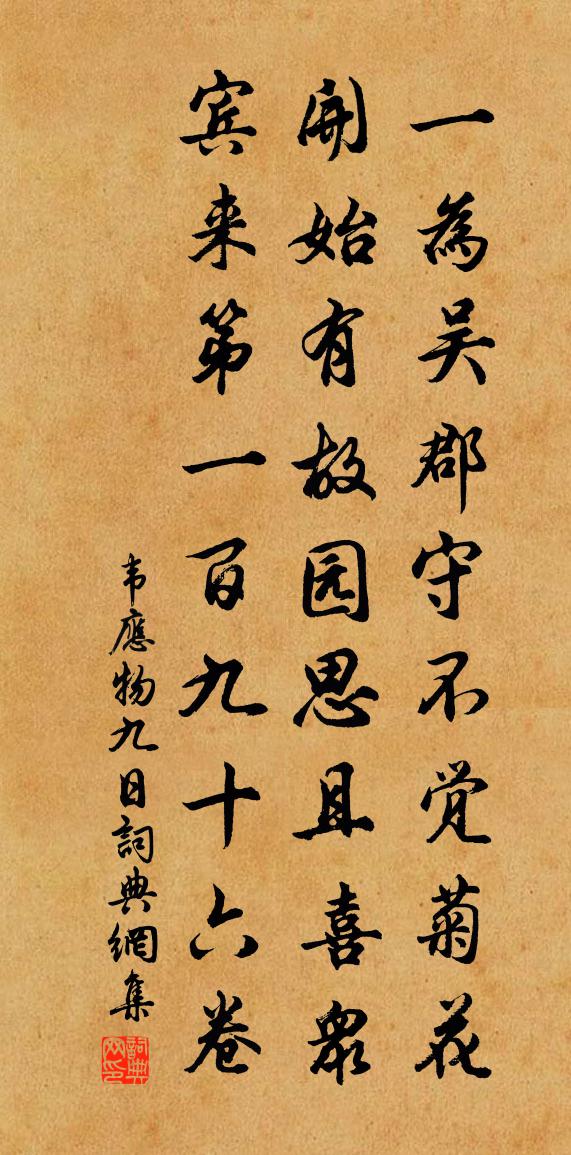 一為吴郡守不觉菊花
開始有故园思且喜眾
宾来第一百九十六卷
韦應物九日詞典網集
詞典网印